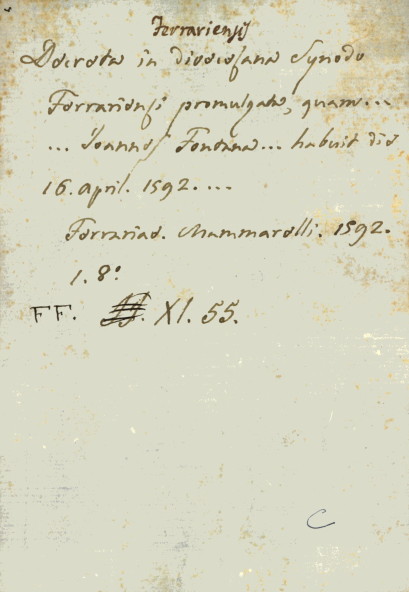 Ferrariensis
Decreta in dioecesana Synodo
Ferrariensi promulgata, quam...
... Joannes Fontana... habuit die
16. april. 1592. ...
Ferrariae. Mammarelli. 1592.
1. 8:
FF. XI. 55.
C